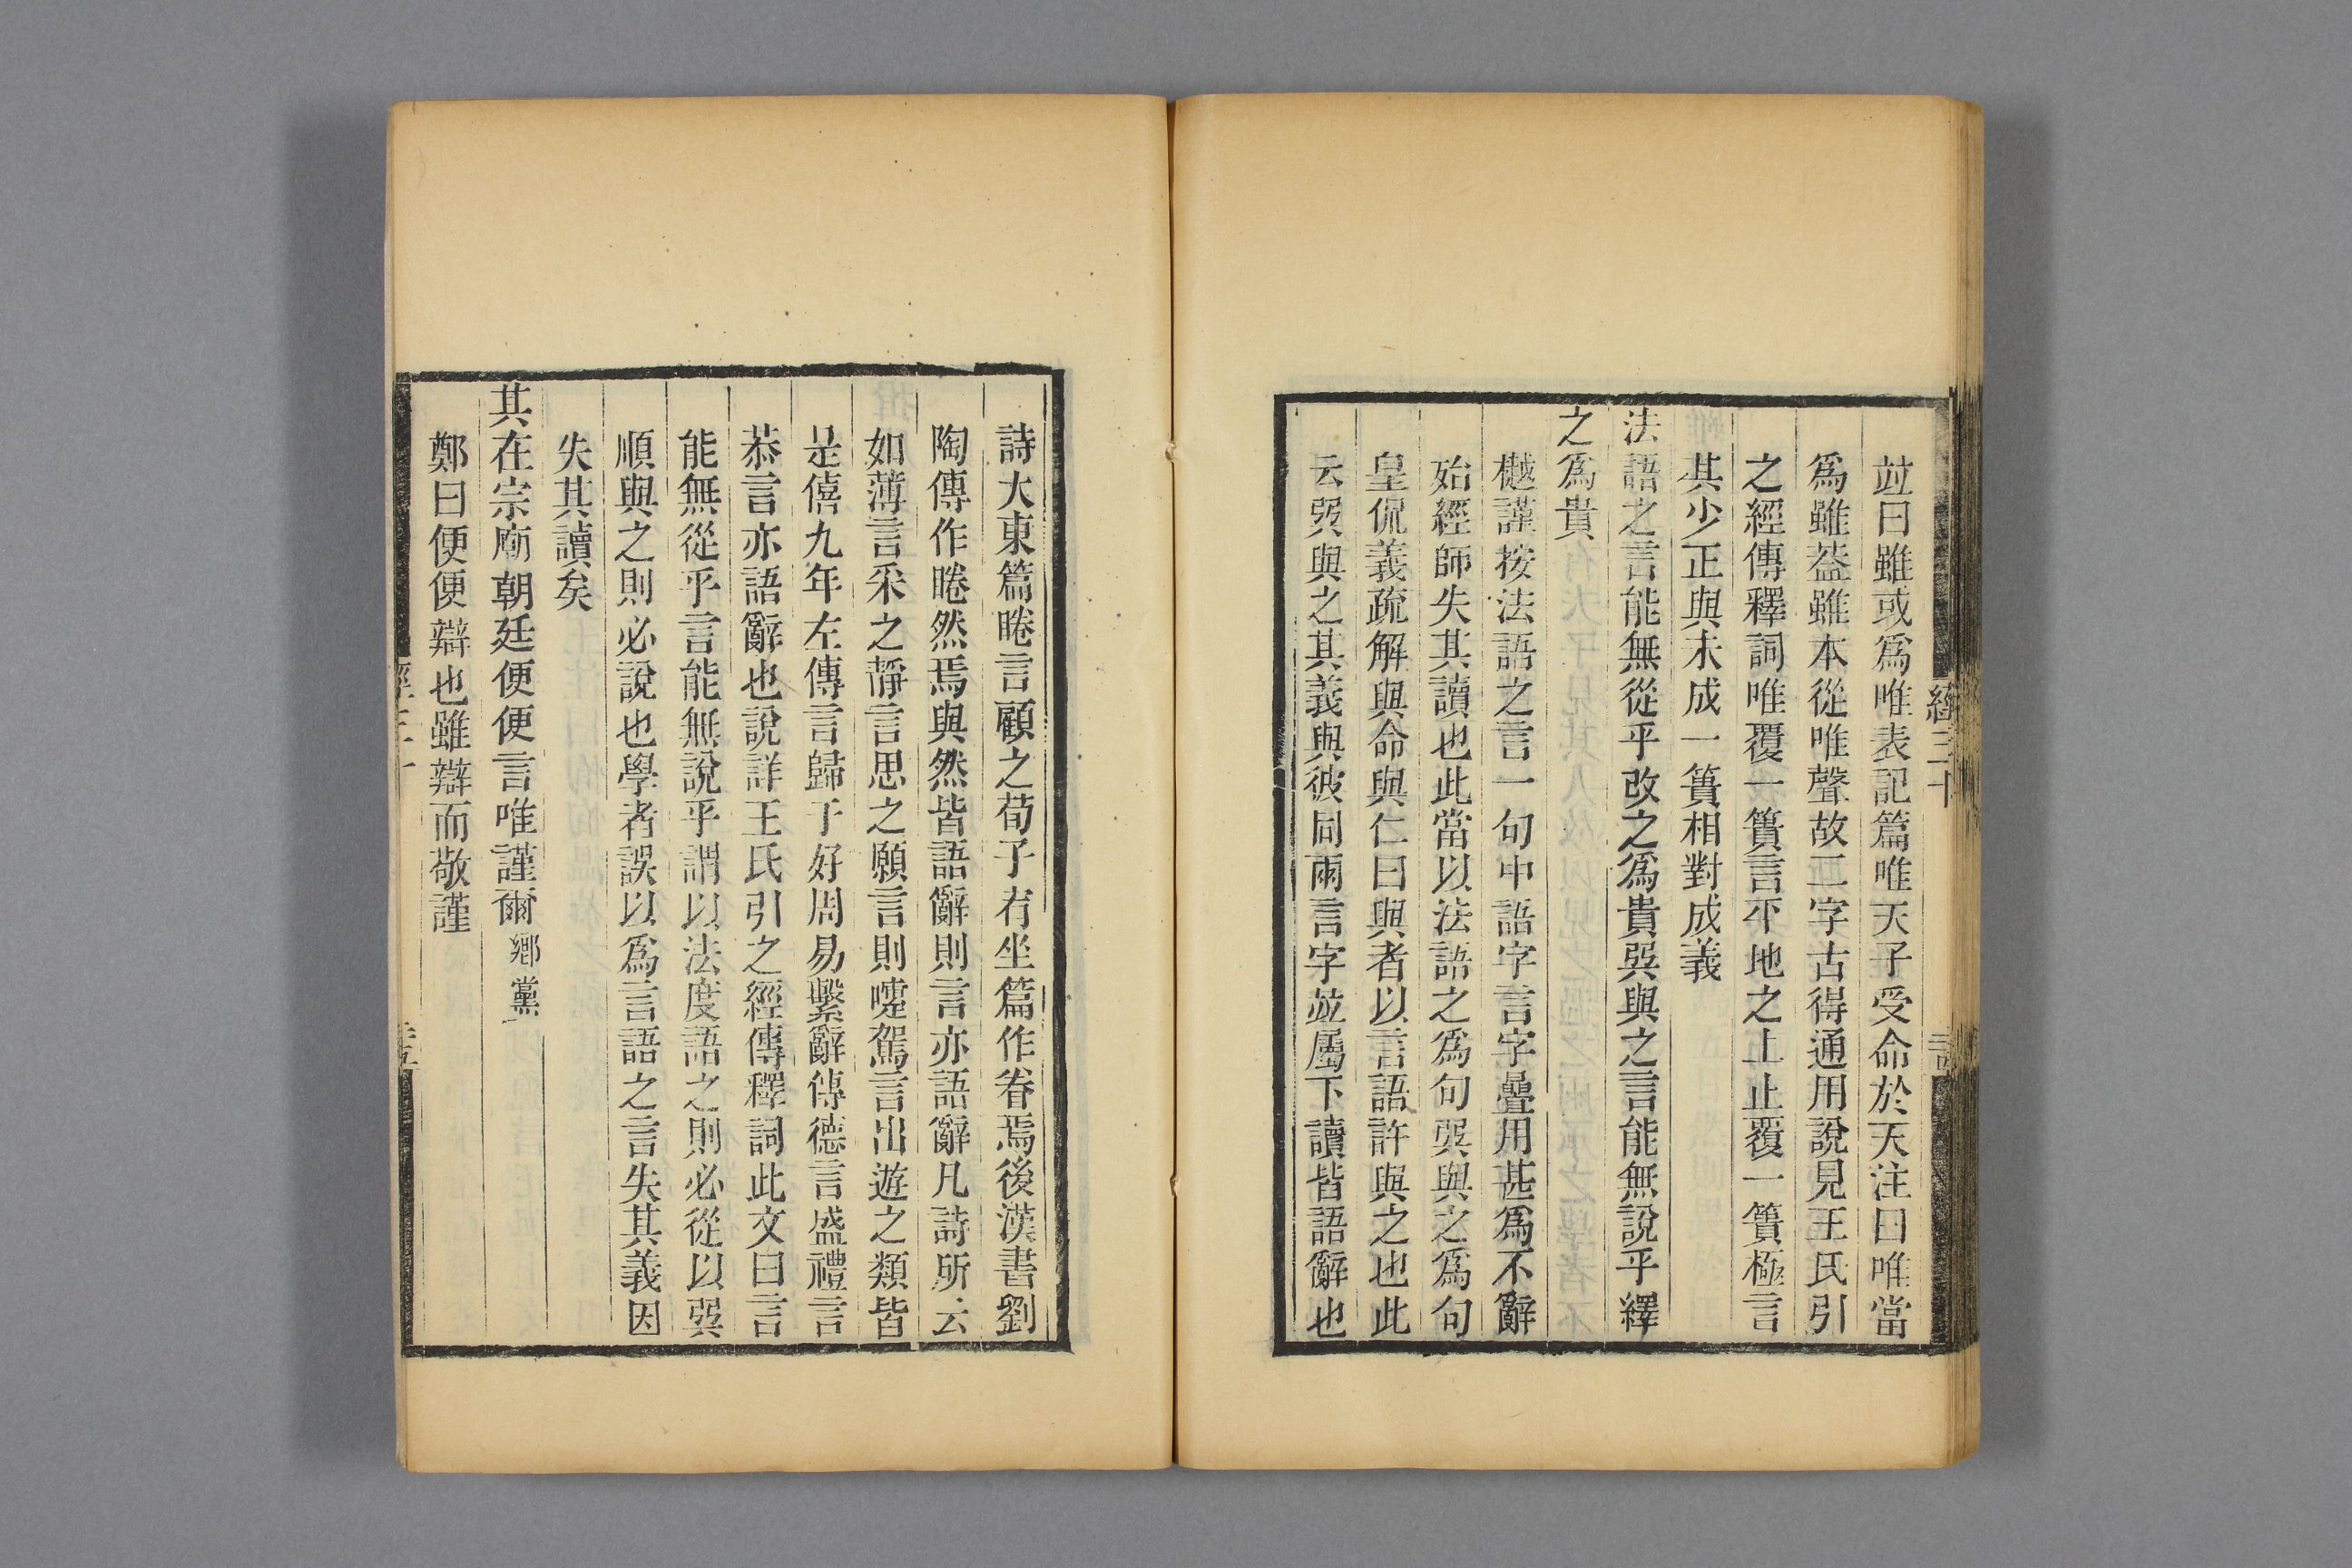 竝曰雖或爲唯表記篇唯天子受命於天注曰唯當
爲雖葢雖本從唯聲故二字古得通用說見王氏引
之經傳釋詞唯覆一簣言平地之上止覆一簣極言
其少正與未成一簣相對成義
法語之言能無從乎改之爲貴巽與之言能無說乎繹
之爲貴
樾謹按法語之言一句中語字言字疊用甚爲不辭
殆經師失其讀也此當以法語之爲句巽與之爲句
皇侃義疏解與命與仁曰與者以言語許與之也此
云巽與之其義與彼同兩言字竝屬下讀皆語辭也
詩大東篇睠言顧之荀子宥坐篇作眷焉後漢書劉
陶傳作睠然焉與然皆語辭則言亦語辭凡詩所云
如薄言采之靜言思之願言則嚏駕言出遊之類皆
是僖九年左傳言歸于好周易繫辭傳德言盛禮言
恭言亦語辭也說詳王氏引之經傳釋詞此文曰言
能無從乎言能無說乎謂以法度語之則必從以巽
順與之則必說也學者誤以爲言語之言失其義因
失其讀矣
其在宗廟朝廷便便言唯謹爾鄉黨
鄭曰便便辯也雖辯而敬謹